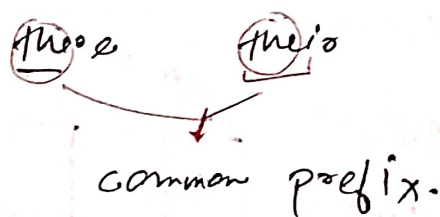 there their
common prefix.